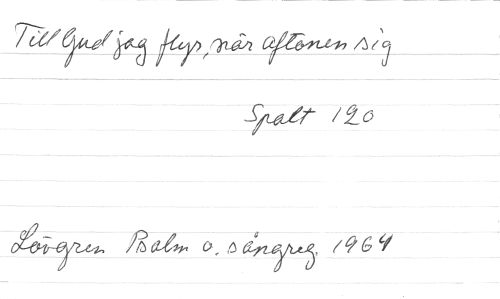 Till Gud jag flyr, när aftonen sig
Spalt 120
Lövgren Psalm o. sångreg. 1964